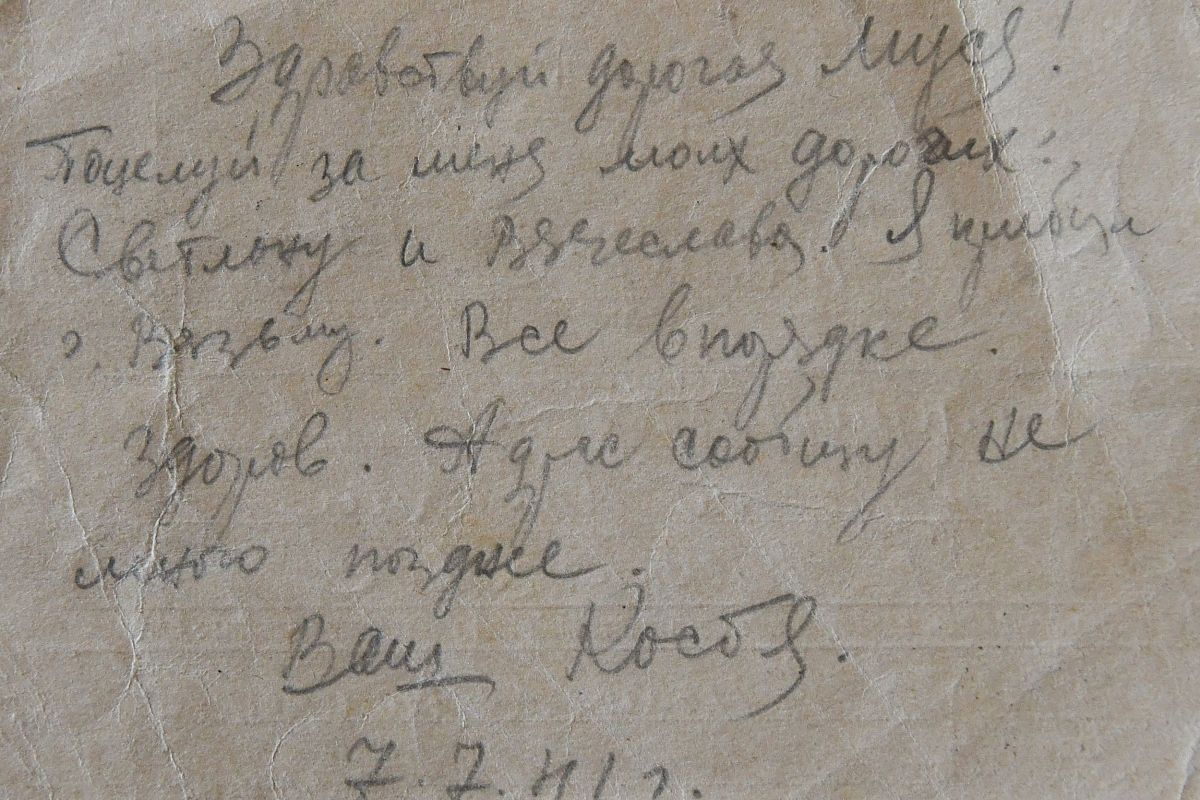 Здравствуй дорогая Муся!
Поцелуй за меня моих дорогих:
Светлану и Вячеслава. Я прибыл
г. Вязьму. Все в порядке.
Здоров. Адрес сообщу не
много позднее.
Ваш Костя.
7.7.41 г.